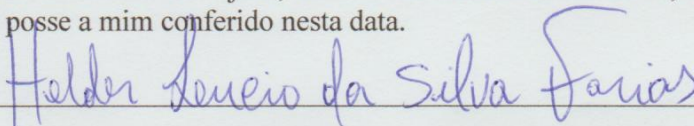 posse a mim conferido nesta data.
Helder Lencio da Silva Farias